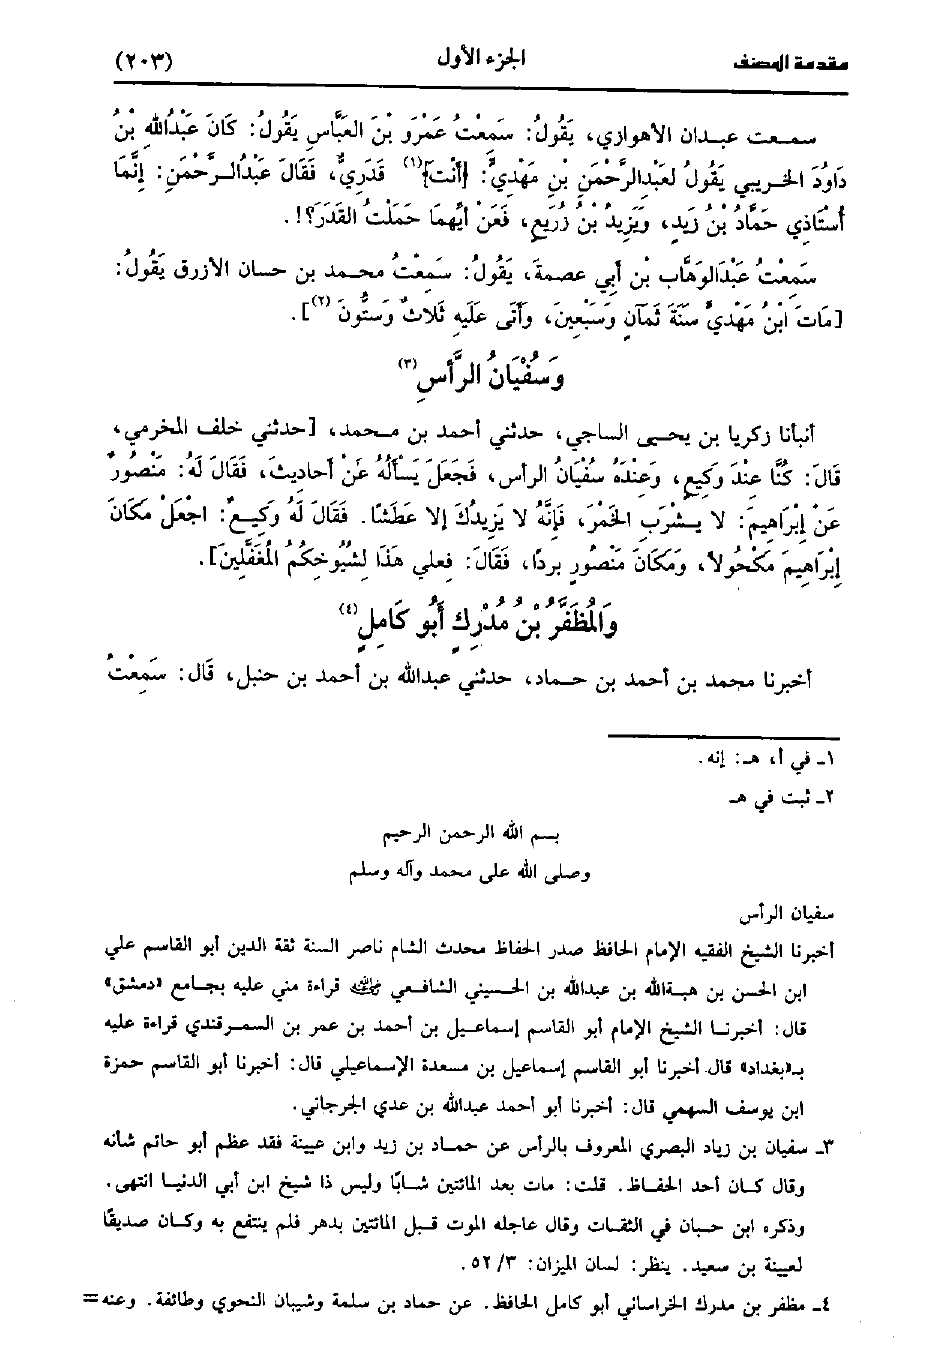 مقدمة المصنف
الجزء الأول
(٢٠٣)
سمعت عبدان الأهوازي، يَقُولُ: سَمِعْتُ عَمْرَو بْنَ العَبَّاسِ يَقُولُ: كَانَ عَبْدُاللهِ بْنُ
دَاوُدَ الخريبي يَقُولُ لعَبْدِالرَّحْمَنِ بْنِ مَهْدِيٍّ: [أَنْتَ](١) قَدَرِيٌّ، فَقَالَ عَبْدُالرَّحْمَنِ: إِنَّمَا
أُسْتَاذِي حَمَّادُ بْنُ زَيدٍ، وَيَزِيدُ بْنُ زُرَيعٍ، فَعَنْ أَيِّهِمَا حَمَلْتُ القَدَرَ؟!.
سَمِعْتُ عَبْدَالوَهَّابِ بْنَ أَبِي عصمة، يَقُولُ: سَمِعْتُ محمد بن حسان الأزرق يَقُولُ:
[مَاتَ ابْنُ مَهْدِيٍّ سَنَةَ ثَمَانٍ وَسَبْعِينَ، وَأَتَى عَلَيهِ ثَلاثٌ وَسِتُّونَ(٢)].
وَسُفْيَانُ الرَّأْسِ(٣)
أنبأنا زكريا بن يحيى الساجي، حدثني أحمد بن محمد، [حدثني خلف المخرمي،
قَالَ: كُنَّا عِنْدَ وَكِيعٍ، وَعِنْدَهُ سُفْيَانُ الرأس، فَجَعَلَ يَسْأَلُهُ عَنْ أَحَادِيثَ، فَقَالَ لَهُ: مَنْصُورٌ
عَنْ إِبْرَاهِيمَ: لا يشْرَبِ الخَمْرَ، فَإِنَّهُ لا يَزِيدُكَ إلا عَطَشًا. فَقَالَ لَهُ وَكِيعٌ: اجْعَلْ مَكَانَ
إِبْرَاهِيمَ مَكْحُولاً، وَمَكَانَ مَنْصُورٍ بردًا، فَقَالَ: فعلي هَذَا لِشُيُوخِكُمِ المُغَفَّلِينَ].
وَالمُظَفَّرُ بْنُ مُدْرِكٍ أَبُو كَامِلٍ(٤)
أخبرنا محمد بن أحمد بن حماد، حدثني عبدالله بن أحمد بن حنبل، قَال: سَمِعْتُ
١ـ في أ، هـ: إنه.
٢ـ ثبت في هـ
بسم الله الرحمن الرحيم
وصلى الله على محمد وآله وسلم
سفيان الرأس
أخبرنا الشيخ الفقيه الإمام الحافظ صدر الحفاظ محدث الشام ناصر السنة ثقة الدين أبو القاسم علي
ابن الحسن بن هبةالله بن عبدالله بن الحسيني الشافعي ﷺ قراءة مني عليه بجامع «دمشق»
قال: أخبرنا الشيخ الإمام أبو القاسم إسماعيل بن أحمد بن عمر بن السمرقندي قراءة عليه
بـ«بغداد» قال أخبرنا أبو القاسم إسماعيل بن مسعدة الإسماعيلي قال: أخبرنا أبو القاسم حمزة
ابن يوسف السهمي قال: أخبرنا أبو أحمد عبدالله بن عدي الجرجاني.
٣ـ سفيان بن زياد البصري المعروف بالرأس عن حماد بن زيد وابن عيينة فقد عظم أبو حاتم شأنه
وقال كان أحد الحفاظ. قلت: مات بعد المائتين شابًا وليس ذا شيخ ابن أبي الدنيا انتهى.
وذكره ابن حبان في الثقات وقال عاجله الموت قبل المائتين بدهر فلم ينتفع به وكان صديقًا
لعيينة بن سعيد. ينظر: لسان الميزان: ٣/ ٥٢.
٤ـ مظفر بن مدرك الخراساني أبو كامل الحافظ. عن حماد بن سلمة وشيبان النحوي وطائفة. وعنه=